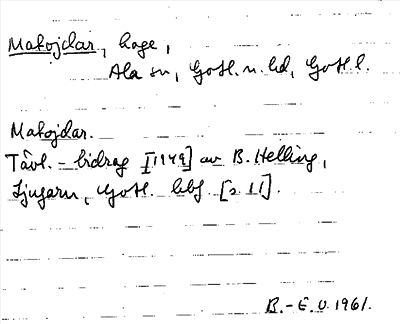 Makojdar, hage,
Ala sn, Gotl. n. hd, Gotl. l.
Makojdar.
Tävl.-bidrag [1949] av B. Helling,
Ljugarn, Gotl. hbf. [s 11].
B.-E. U. 1961.